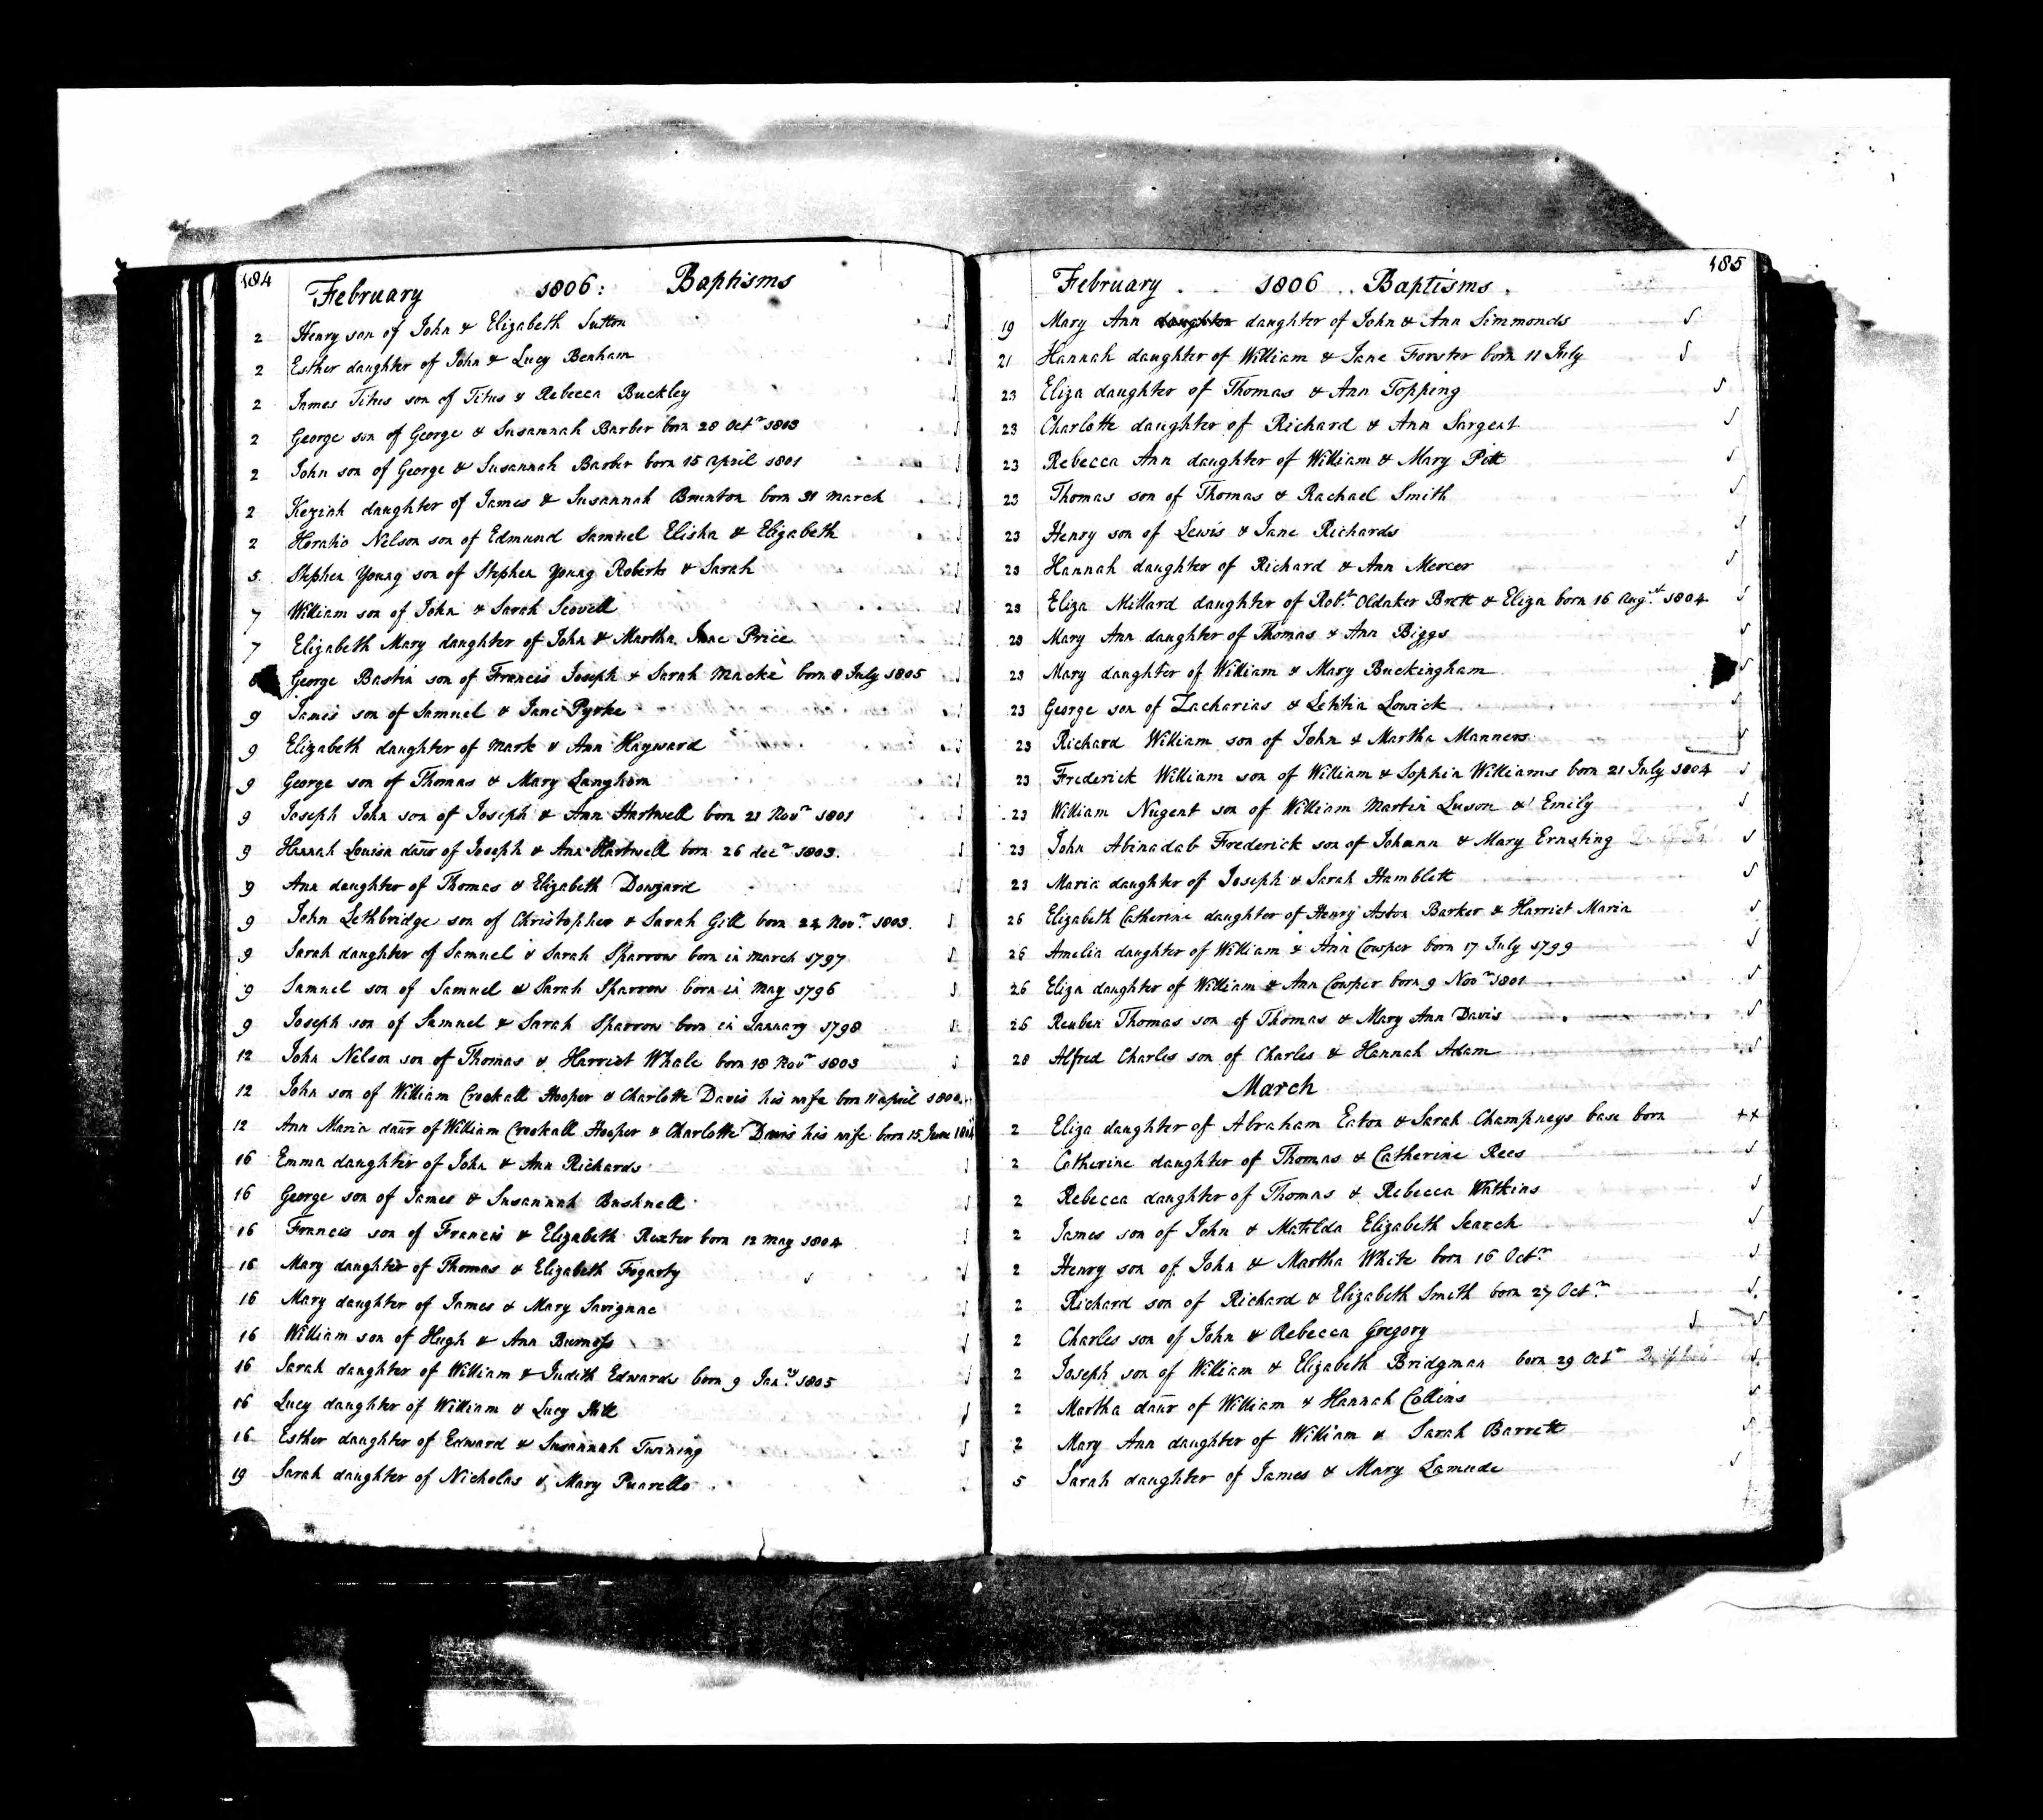 184
February 1806: Baptisms
2 Henry son of John & Elizabeth Sutton
2 Esther daughter of John & Lucy Benham
2 James Titus son of Titus & Rebecca Buckley
2 George son of George & Susannah Barber born 28 Octr 1803
2 John son of George & Susannah Barber born 15 april 1801
2 Keziah daughter of James & Susannah Brunton born 31 march
2 Horatio Nelson son of Edmund Samuel Elisha & Elizabeth
5 Stephen Young son of Stephen Young Roberts & Sarah
7 William son of John & Sarah Scovell
7 Elizabeth Mary daughter of John & Martha Jane Price
George Bastin son of Francis Joseph & Sarah Mackè born 8 July 1805
9 James son of Samuel & Jane Pyrke
9 Elizabeth daughter of Mark & Ann Hayward
9 George son of Thomas & Mary Langham
9 Joseph John son of Joseph & Ann Hartwell born 21 Novr 1801
9 Hannah Louisa daur of Joseph & Ann Hartwell born 26 decr 1803.
9 Ann daughter of Thomas & Elizabeth Dowzard
9 John Lethbridge son of Christopher & Sarah Gill born 24 Novr 1803.
9 Sarah daughter of Samuel & Sarah Sparrow born in march 1797
9 Samuel son of Samuel & Sarah Sparrow born in May 1796
9 Joseph son of Samuel & Sarah Sparrow born in January 1798
12 John Nelson son of Thomas & Harriet Whale born 18 Novr 1803
12 John son of William Crockall Hooper & Charlotte Davis his wife born 11 april
12 Ann Maria daur of William Crockall Hooper & Charlotte Davis his wife born 15 June
16 Emma daughter of John & Ann Richards
16 George son of James & Susannah Bushnell
16 Francis son of Francis & Elizabeth Rixter born 12 may 1804
16 Mary daughter of Thomas & Elizabeth Fogarty
16 Mary daughter of James & Mary Savignac
16 William son of Hugh & Ann Burness
16 Sarah daughter of William & Judith Edwards born 9 Jany 1805
16 Lucy daughter of William & Lucy Hill
16 Esther daughter of Edward & Susannah Twining
19 Sarah daughter of Nicholas & Mary Puarello
185
February 1806 Baptisms
19 Mary Ann daughter daughter of John & Ann Simmonds
21 Hannah daughter of William & Jane Forster born 11 July
23 Eliza daughter of Thomas & Ann Topping
23 Charlotte daughter of Richard & Ann Sargent
23 Rebecca Ann daughter of William & Mary Pitt
23 Thomas son of Thomas & Rachael Smith
23 Henry son of Lewis & Jane Richards
23 Hannah daughter of Richard & Ann Mercer
23 Eliza Millard daughter of Robt Oldaker Brett & Eliza born 16 Augst 1804
23 Mary Ann daughter of Thomas & Ann Biggs
23 Mary daughter of William & Mary Buckingham
23 George son of Zacharias & Letitia Lowick
23 Richard William son of John & Martha Manners
23 Frederick William son of William & Sophia Williams born 21 July 1804
23 William Nugent son of William Martin Luson & Emily
23 John Abinadab Frederick son of Johann & Mary Ernsting
23 Maria daughter of Joseph & Sarah Hamblett
26 Elizabeth Catherine daughter of Henry Aston Barker & Harriet Maria
26 Amelia daughter of William & Ann Cowper born 17 July 1799
26 Eliza daughter of William & Ann Cowper born 9 Novr 1801
26 Reuben Thomas son of Thomas & Mary Ann Davis
28 Alfred Charles son of Charles & Hannah Adam
March
2 Eliza daughter of Abraham Eaton & Sarah Champneys base born ++
2 Catherine daughter of Thomas & Catherine Rees
2 Rebecca daughter of Thomas & Rebecca Watkins
2 James son of John & Matilda Elizabeth Search
2 Henry son of John & Martha White born 16 Octr
2 Richard son of Richard & Elizabeth Smith born 27 Octr
2 Charles son of John & Rebecca Gregory
2 Joseph son of William & Elizabeth Bridgman born 29 Octr
2 Martha daur of William & Hannah Collins
2 Mary Ann daughter of William & Sarah Barrett
5 Sarah daughter of James & Mary Lamude